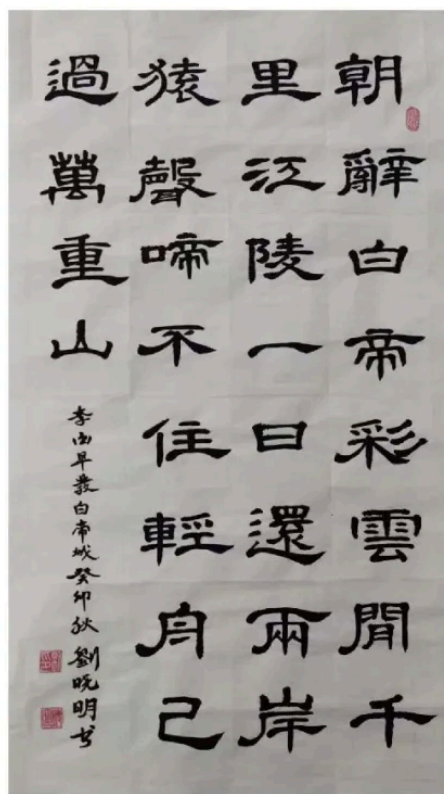 朝辭白帝彩雲間千
里江陵一日還兩岸
猿聲啼不住輕舟已
過萬重山
李白早發白帝城癸卯秋劉曉明书